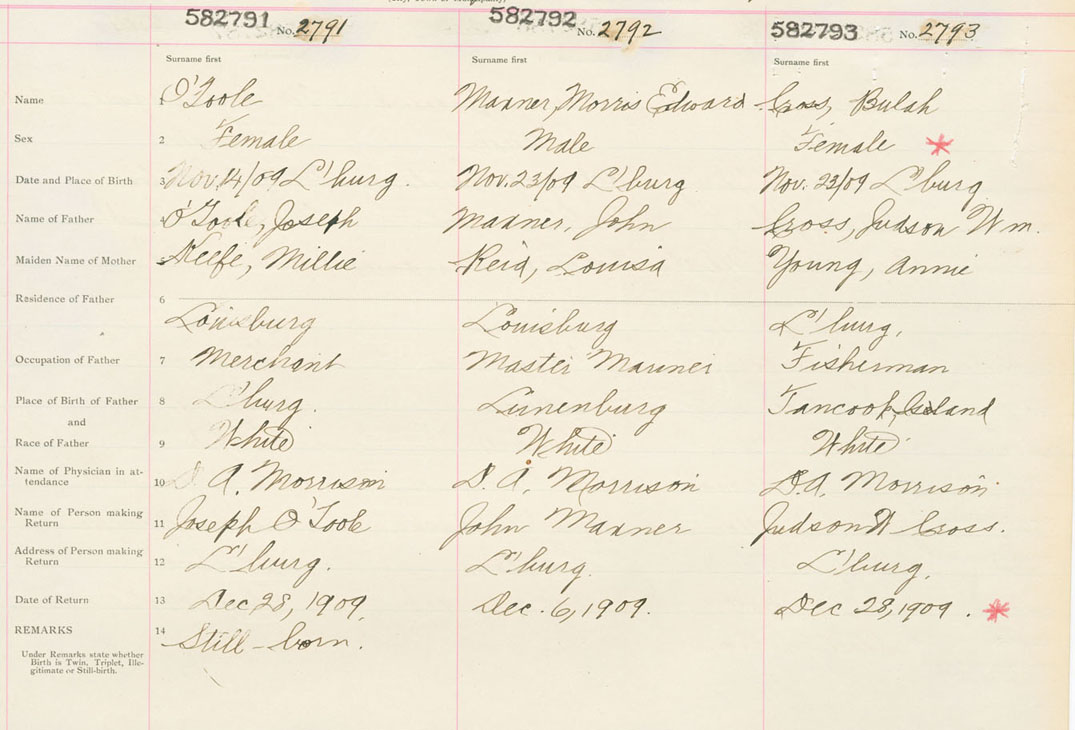 582791 No. 2791 582792 No. 2792 582793 No. 2793
Surname first Surname first Surname first
Name 1 O'Toole Manner, Morris Edward Cross, Bulah
Sex 2 Female Male Female *
Date and Place of Birth 3 Nov. 14/09 L'burg. Nov. 23/09 L'burg Nov. 23/09 L'burg
Name of Father 4 O'Toole, Joseph Manner, John Cross, Judson Wm.
Maiden Name of Mother 5 Keefe, Millie Reid, Louisa Young, Annie
Residence of Father 6
Louisburg Louisburg L'burg,
Occupation of Father 7 Merchant Master Mariner Fisherman
Place of Birth of Father 8 L'burg. Lunenburg Tancook, Island
and
Race of Father 9 White White White
Name of Physician in at-
tendance 10 D. A. Morrison D. A. Morrison D.A. Morrison
Name of Person making
Return 11 Joseph O'Toole John Manner Judson W Cross.
Address of Person making
Return 12 L'burg. L'burg. L'burg,
Date of Return 13 Dec 28, 1909, Dec. 6, 1909. Dec 28, 1909. *
REMARKS 14 Still-born.
Under Remarks state whether
Birth is Twin, Triplet, Ille-
gitimate or Still-birth.